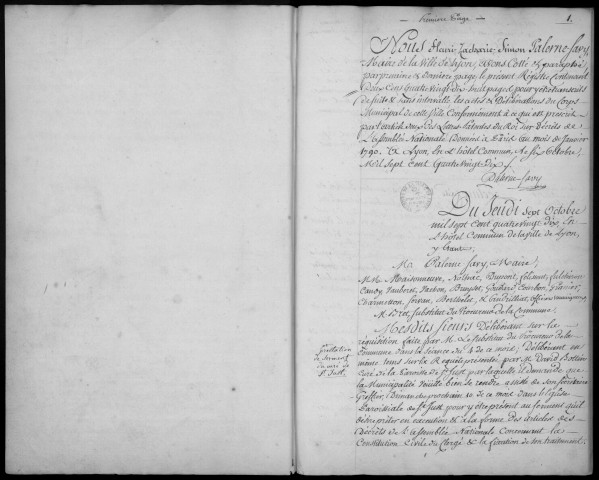 Premiere Page
1.
Nous Henri Zacharie Simon Palerne-Savy,
Maire de la Ville de Lyon, avons Cotté & paraphé,
par premiere & derniere page le présent Registre Contenant
Deux Cens quatre vingt dix huit pages pour y être transcrits
de suite & sans intervalle, les actes & Délibérations du Corps
Municipal de cette Ville Conformément à ce qui est prescrit
par l'article des Lettres-Patentes du Roi sur Décrets de
L'Assemblée Nationale, Données à Paris au mois de Janvier
1790. à Lyon, En l'hôtel Commun, le six Octobre,
Mil sept Cent Quatre vingt Dix.
Palerne-Savy
Du Jeudi sept Octobre
mil sept cent quatre vingt dix En
L'hôtel Commun de la ville de Lyon,
y étant;
M. Palerne Savy, Maire;
M.M. Maisonneuve, Nolhac, Dupont,
Candy, Vauberet, Vachon, Bruyset, Goudard, Courbon,
Charmetton, Servan, Berthelet, & officiers municipaux,
M. Bret, Substitut du Procureur de la Commune;
Prestation
de Serment
du curé de
St. Just.
Mesdits Sieurs Délibérant sur la
réquisition faite par M. Le substitut du Procureur de la
Commune dans la séance du 4 de ce mois; Délibérant en
même tems sur la Requête présentée par M. David
Curé de la Paroisse de St. Just par laquelle il demande que
la Municipalité veuille bien se rendre assistée de son Secrétaire
Greffier, Dimanche prochain 10 de ce mois dans l'Eglise
Paroissiale de St. Just pour y être présent au serment qu'il
doit prêter en exécution & à la forme des articles des
Décrets de l'Assemblée Nationale Concernant la
Constitution Civile du Clergé & la fixation de son traitement;